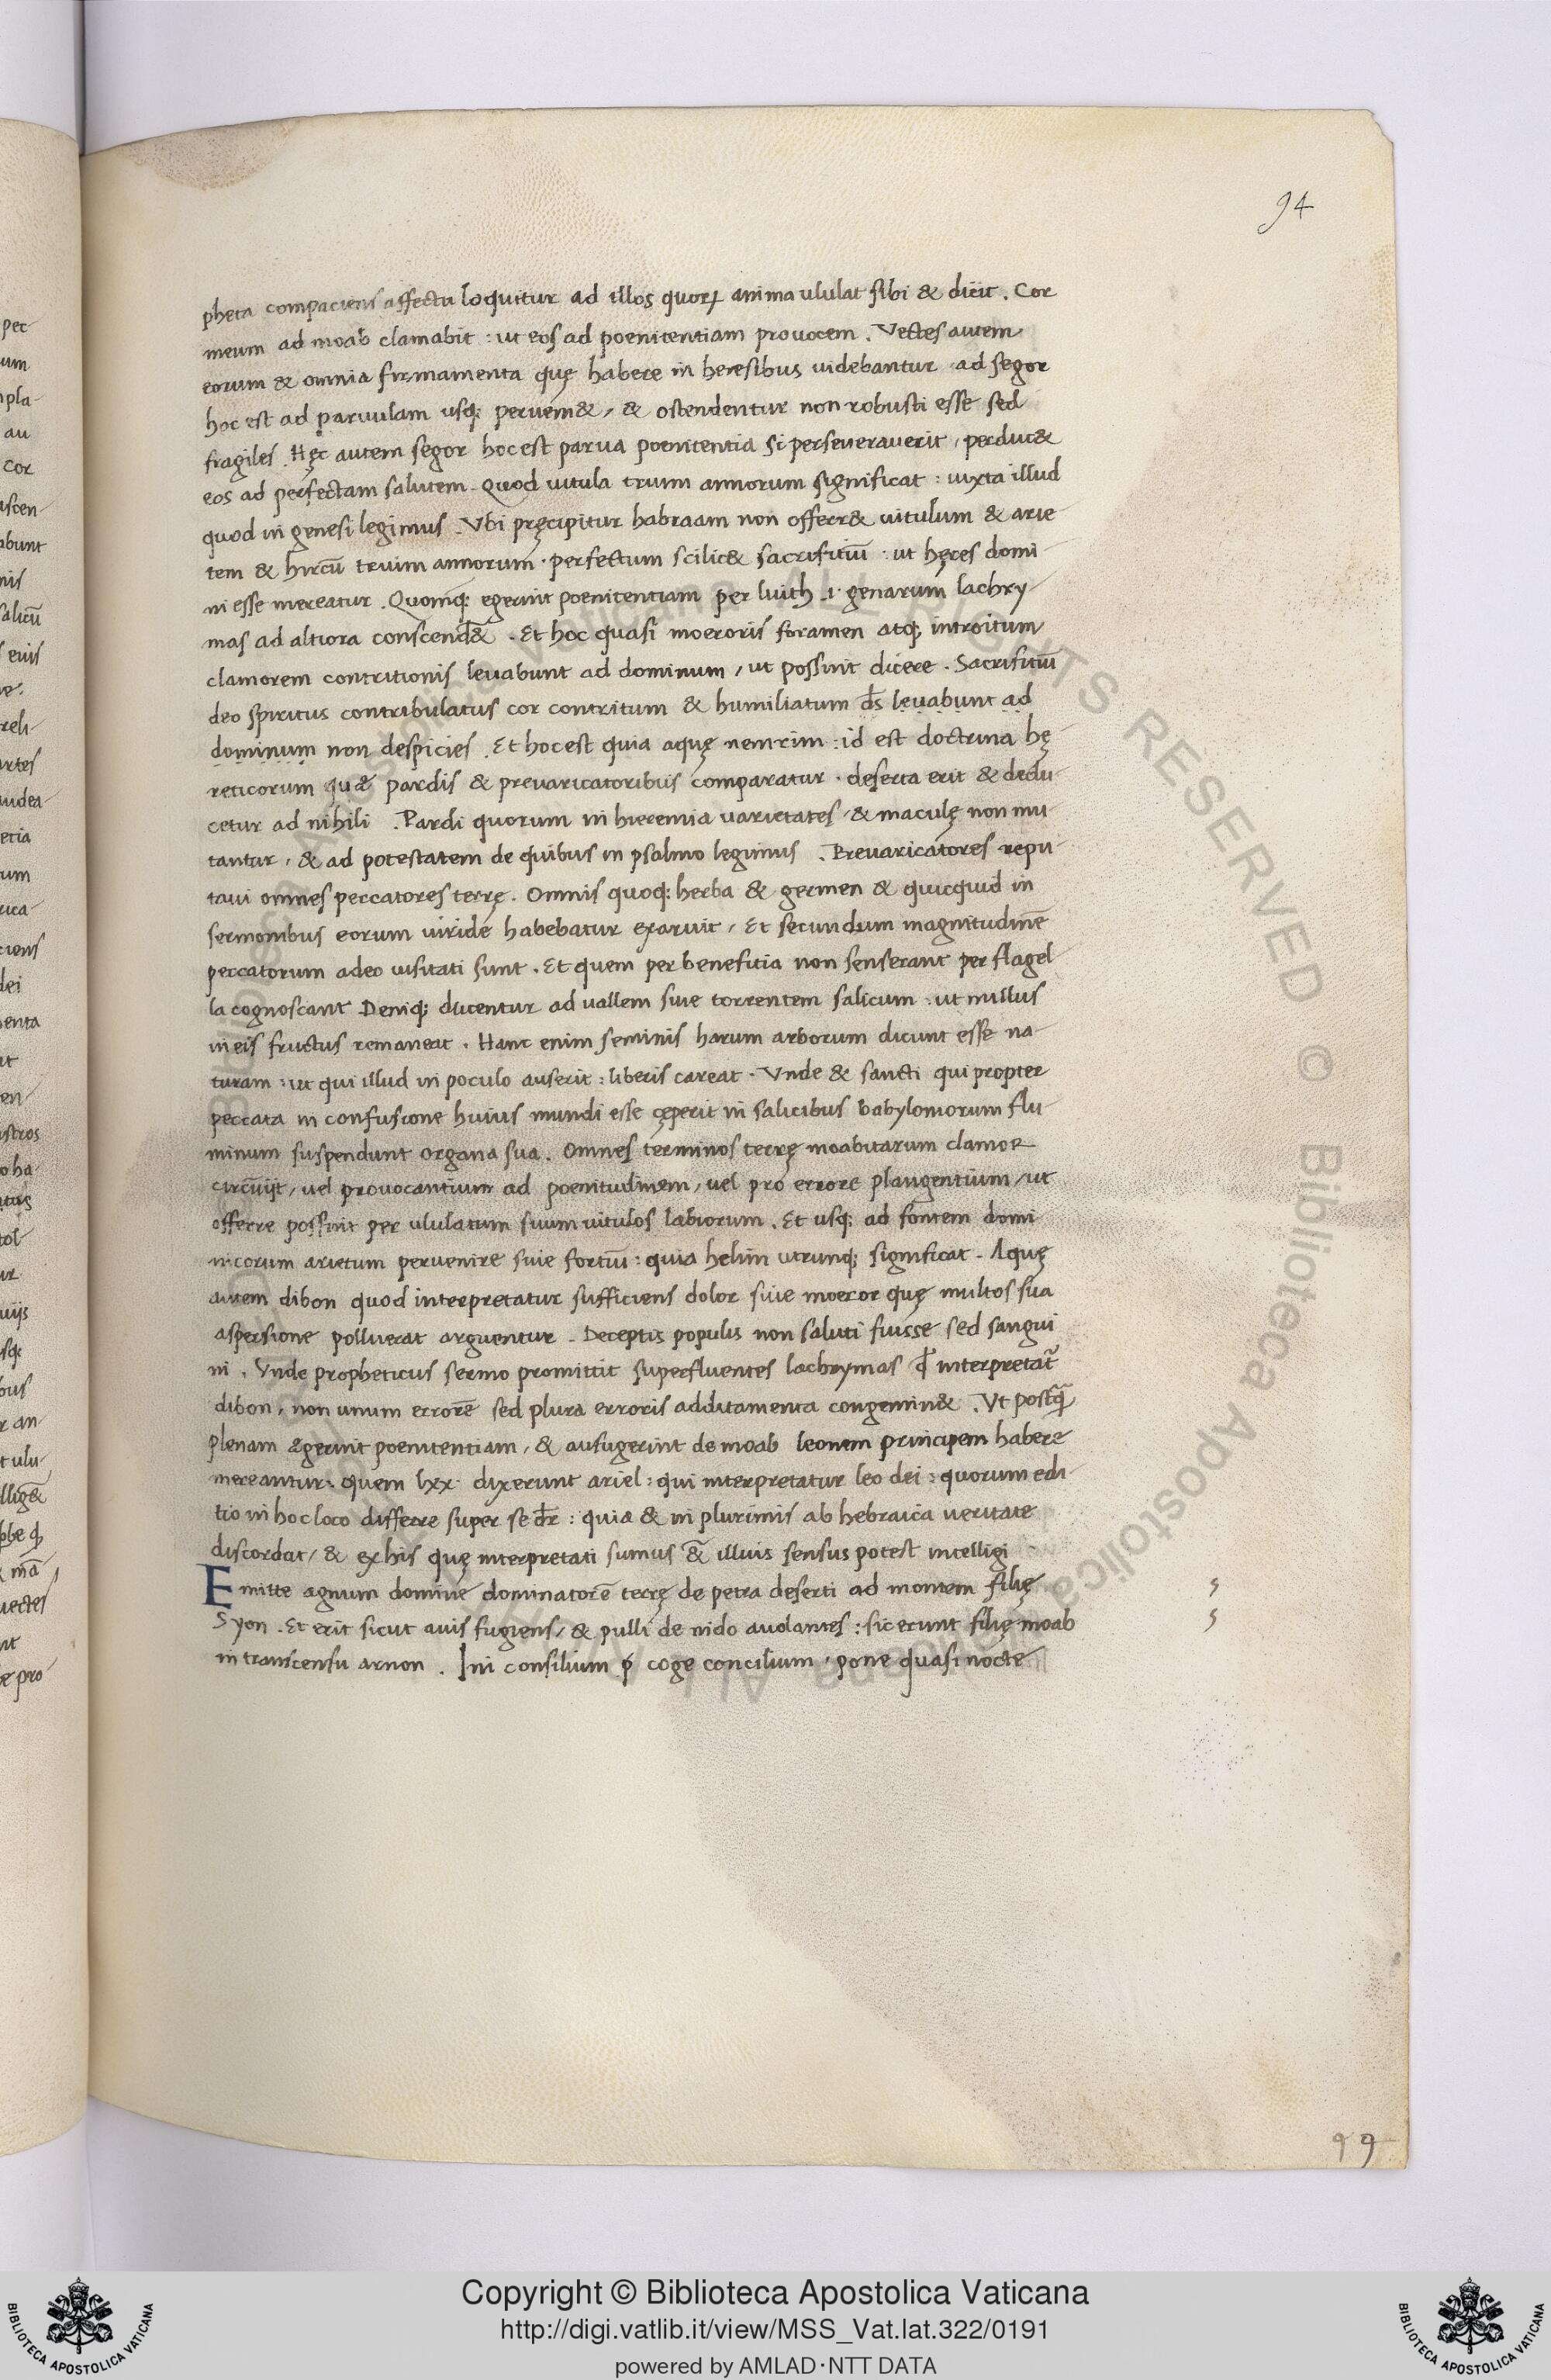 94
pheta compaciens affectu loquitur ad illos quoꝝ anima ululat sibi & dicit . Cor
meum ad moab clamabit : ut eos ad poenitentiam prouocem . Vectes autem
eorum & omnia firmamenta quę habere in heresibus uidebantur · ad segor
hoc est ad paruulam usq; peruem& , & ostendentur non robusti esse sed
fragiles . Hęc autem segor hoc est parua poenitentia si perseuerauerit , perduc&
eos ad perfectam salutem . Quod uitula trium annorum significat : iuxta illud
quod in genesi legimus . Vbi pręcipitur habraam non offerr& uitulum & arie-
tem & hircū trium annorum · perfectum scilic& sacrifitiū : ut hęres domi-
ni esse mereatur . Quomq; egerint poenitentiam per luith .i. genarum lachry-
mas ad altiora conscend& . Et hoc quasi moeroris foramen atq; introitum
clamorem contritionis leuabunt ad dominum , ut possint dicere . Sacrifitiū
deo spiritus contribulatus cor contritum & humiliatum d̄s leuabunt ad
dominum non despicies . Et hoc est quia aquę nemrim : id est doctrina hę
reticorum quæ pardis & preuaricatoribus comparatur · deserta erit & dedu-
cetur ad nihili . Pardi quorum in hieremia uarietates , & maculę non mu
tantur , & ad potestatem de quibus in psalmo legimus . Preuaricatores repu-
taui omnes peccatores terrę . Omnis quoq; herba & germen & quicquid in
sermonibus eorum uiride habebatur exaruit , Et secundum magnitudinē
peccatorum adeo uisitati sunt . Et quem per benefitia non senserant per flagel-
la cognoscant Deniq; ducentur ad uallem siue torrentem salicum : ut nullus
in eis fructus remaneat . Hanc enim seminis harum arborum dicunt esse na-
turam : ut qui illud in poculo auserit : liberis careat . Vnde & sancti qui propter
peccata in confusione huius mundi esse cęperit in salicibus babylomorum flu-
minum suspendunt organa sua . Omnes terminos terrę moabitarum clamor
circūijt , uel prouocantium ad poenitudinem , uel pro errore plangentium , ut
offerre possint per ululatum suum uitulos labiorum . Et usq; ad fontem domi
nicorum arietum peruenire siue fortiū : quia helim utrunq; significat . Aquę
autem dibon quod interpretatur sufficiens dolor siue moeror quę multos sua
aspersione polluerat arguentur . Deceptis populis non saluti fuisse sed sangui
ni . Vnde propheticus sermo promittit superfluentes lachrymas qd̄ interpretat̄
dibon , non unum errorē sed plura erroris additamenta congemin& . Vt postq̄
plenam ægerint poenitentiam , & aufugerint de moab leonem principem habere
mereantur . quem lxx dixerunt ariel : qui interpretatur leo dei : quorum edi-
tio in hoc loco differre super se dr̄ : quia & in plurimis ab hebraica ueritate
discordat , & ex his quę interpretati sumus & illius sensus potest intelligi
Emitte agnum domine dominatorē terrę de petra deserti ad montem filię
Syon . Et erit sicut auis fugiens , & pulli de nido auolantes : sic erunt filię moab
in transcensu arnon . Ini consilium p̱ coge concilium , pone quasi nocte
99
Copyright © Biblioteca Apostolica Vaticana
http://digi.vatlib.it/view/MSS_Vat.lat.322/0191
powered by AMLAD·NTT DATA